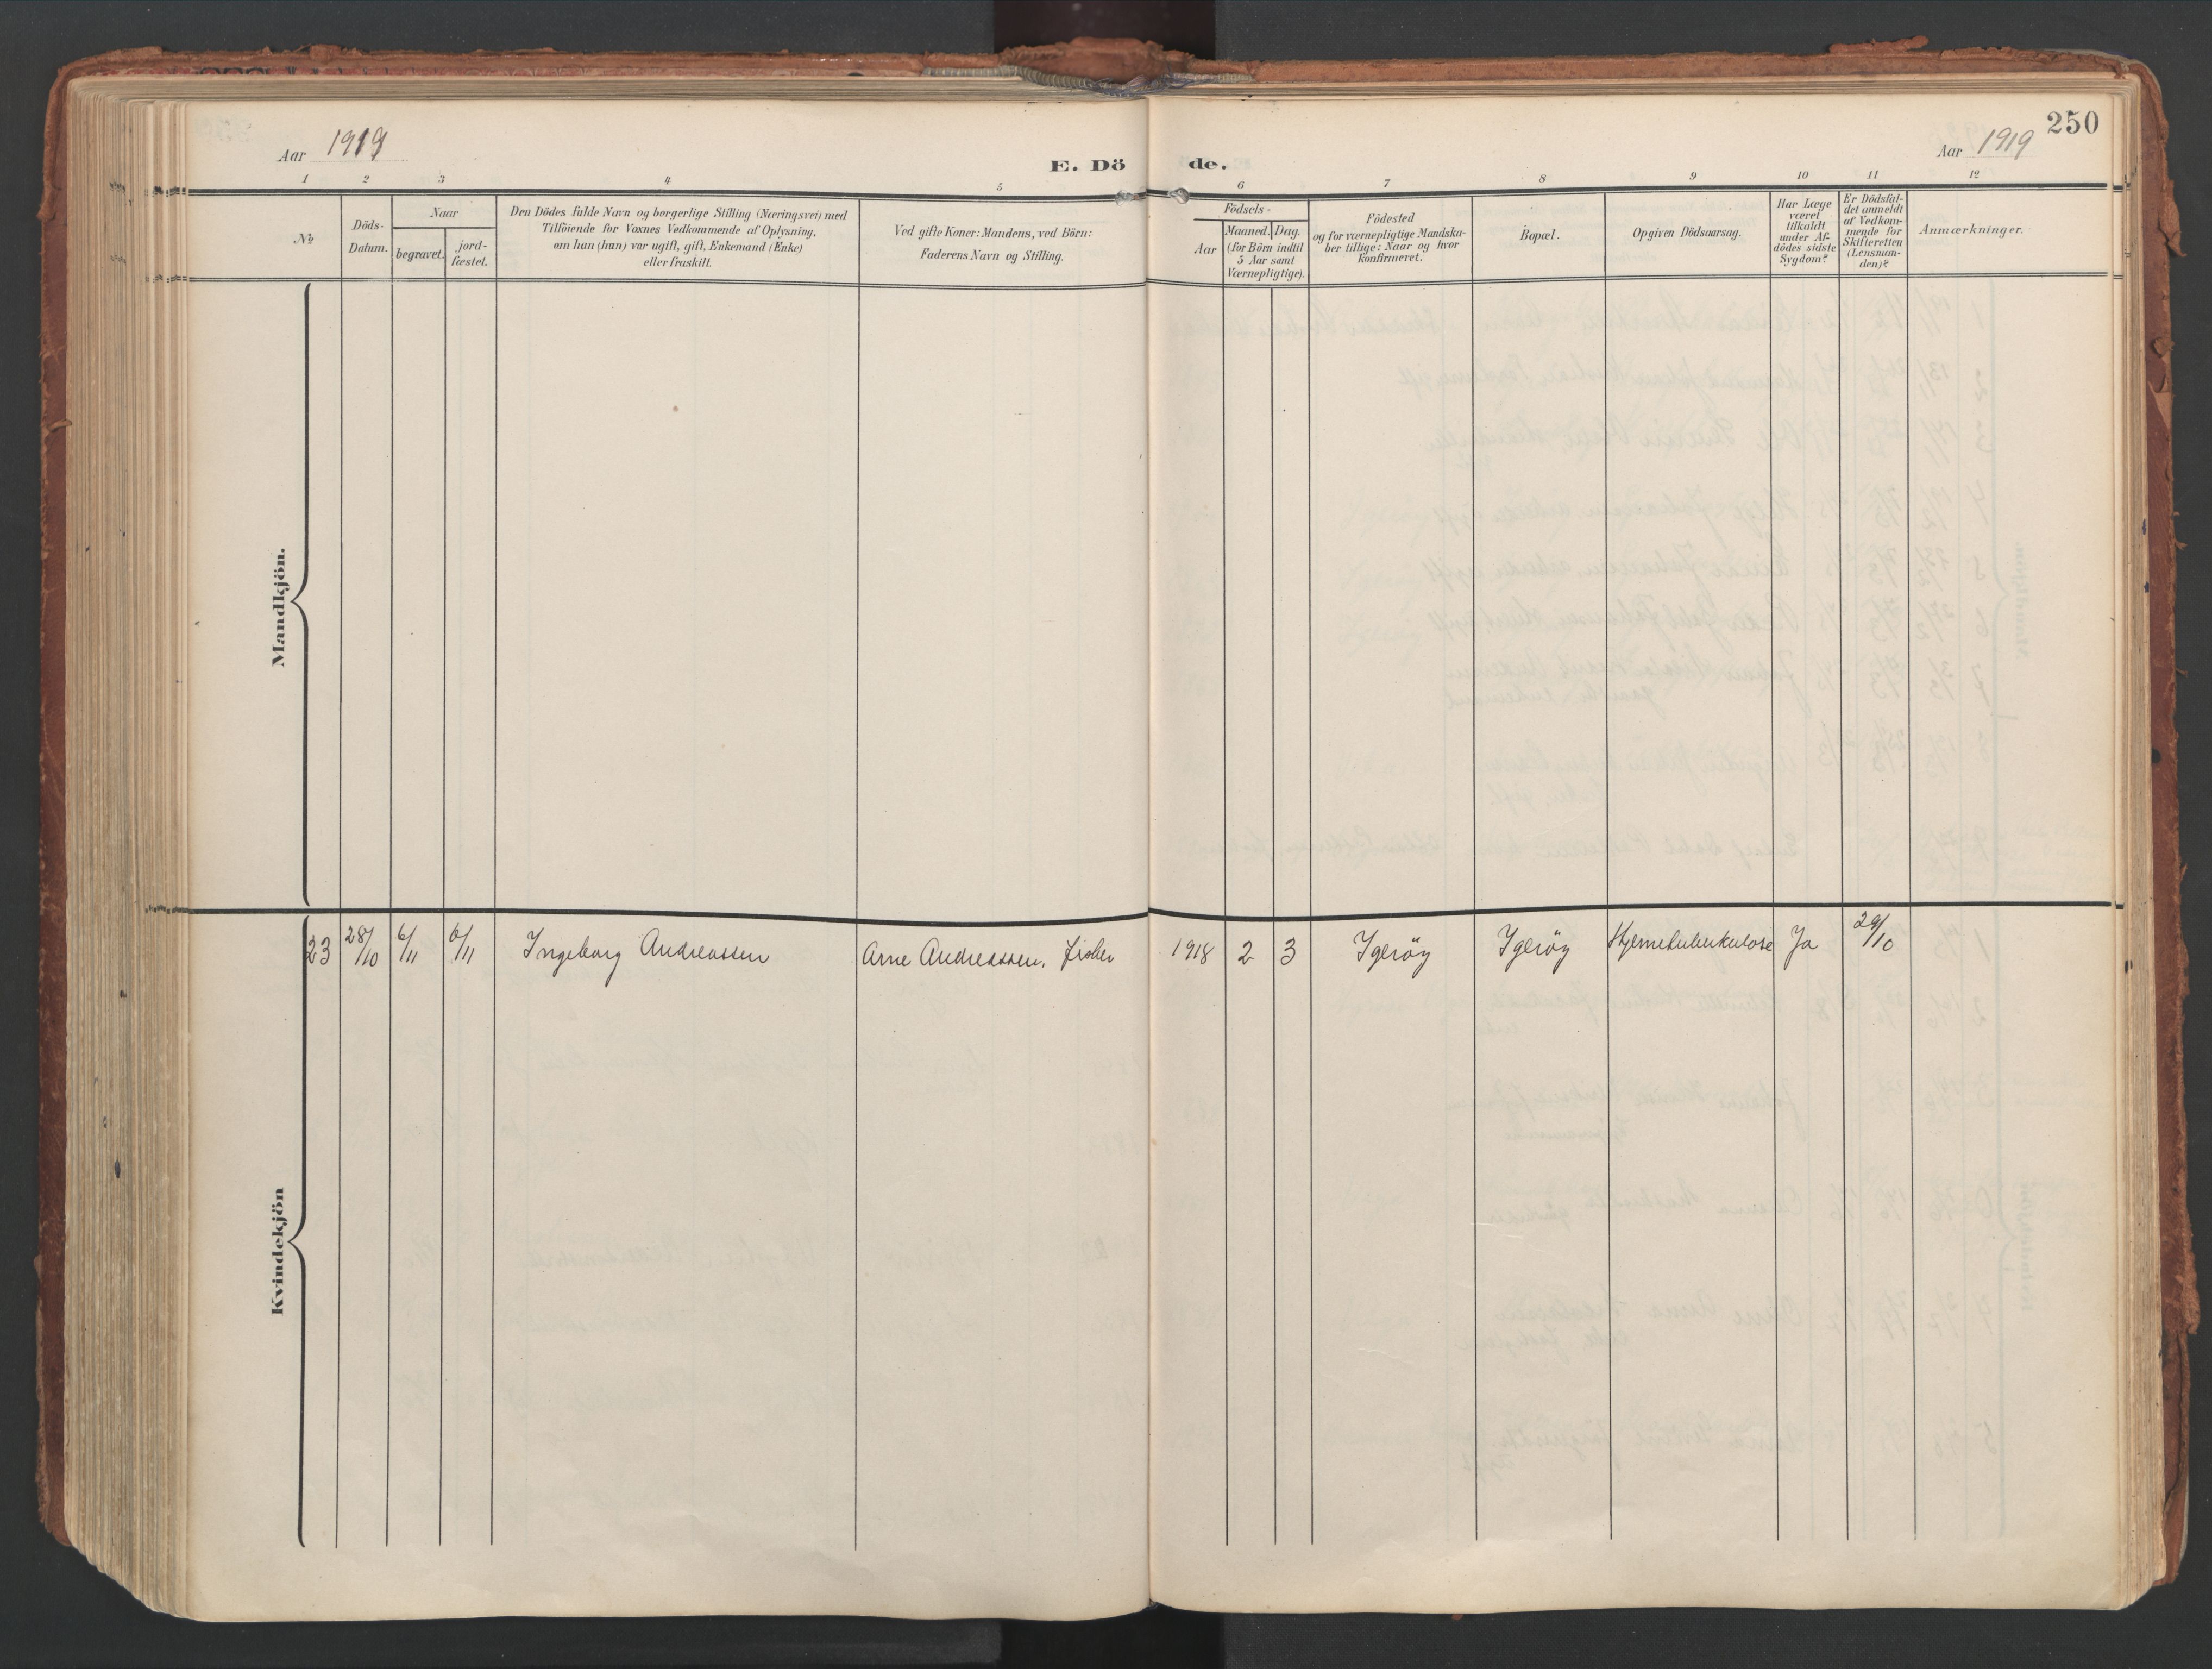 250
Aar 1919
E. Dö de.
Aar 1919
1 2 3 4 5 6 7 8 9 10 11 12
No
Döds-
Datum.
Naar
begravet.
jord-
fæstet.
Den Dödes fulde Navn og borgerlige Stilling (Næringsvei) med
Tilföiende for Voxnes Vedkommende af Oplysning,
om han (hun) var ugift, gift, Enkemand (Enke)
eller fraskilt.
Ved gifte Koner: Mandens, ved Börn:
Faderens Navn og Stilling.
Födsels-
Aar
Maaned. Dag.
(for Börn indtil
5 Aar samt
Værnepligtige).
Födested
og for værnepligtige Mandska-
ber tillige: Naar og hvor
konfirmeret.
Bopæl.
Opgiven Dödsaarsag.
Har Læge
været
tilkaldt
under Af-
dödes sidste
Sygdom?
Er Dödsfal-
det anmeldt
af Vedkom-
mende for
Skifteretten
(Lensman-
den)?
Anmærkninger.
Mandkjön.
23 28/10 6/11 6/11 Ingeborg Andreassen Arne Andreassen, fisker 1918 2 3 Igeröy Igeröy Hjernetuberkulose Ja 29/10
Kvindekjön